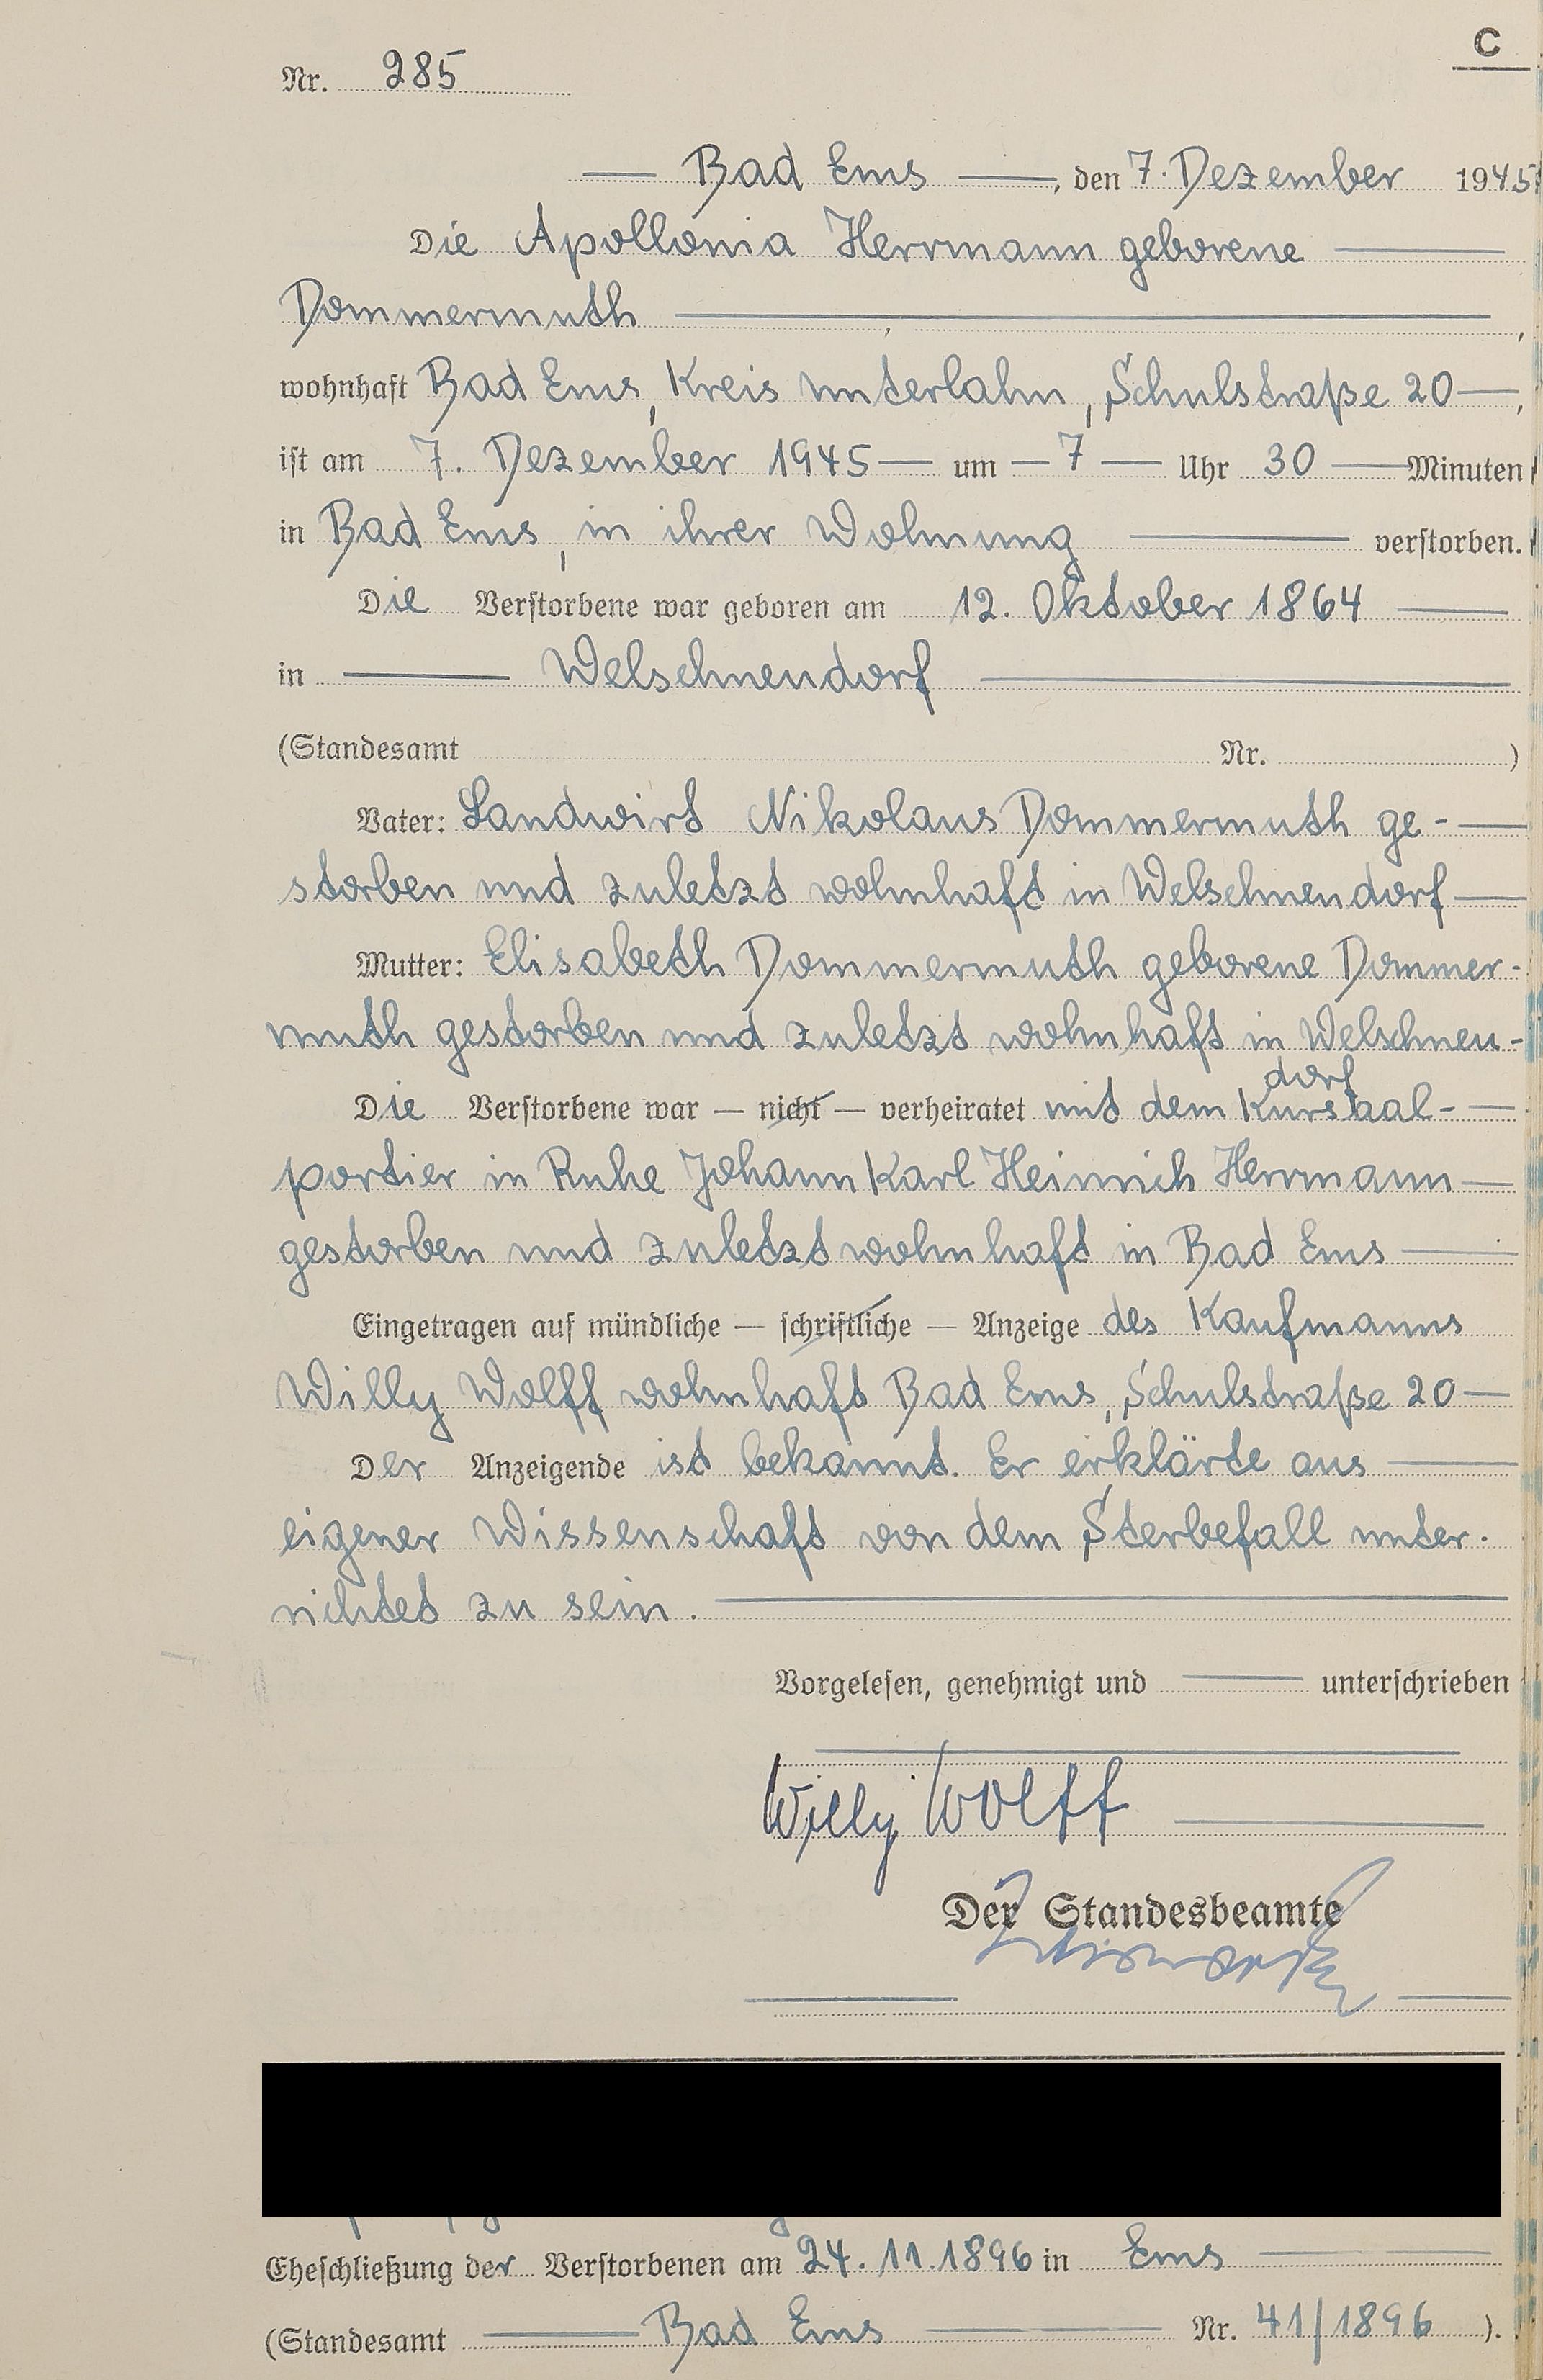 C
Nr. 285
— Bad Ems —, den 7. Dezember 1945
Die Apollonia Herrmann geborene —
Dommermuth —, —,
wohnhaft Bad Ems, Kreis Unterlahn, Schulstraße 20 —,
ist am 7. Dezember 1945 — um — 7 — Uhr 30 — Minuten
in Bad Ems, in ihrer Wohnung — verstorben.
Die Verstorbene war geboren am 12. Oktober 1864 —
in — Welschneudorf —
(Standesamt Nr. )
Vater: Landwirt Nikolaus Dommermuth ge- —
storben und zuletzt wohnhaft in Welschneudorf —
Mutter: Elisabeth Dommermuth geborene Dommer-
muth gestorben und zuletzt wohnhaft in Welschneu-
dorf
Die Verstorbene war — nicht — verheiratet mit dem Kursaal- —
portier in Ruhe Johann Karl Heinrich Herrmann —
gestorben und zuletzt wohnhaft in Bad Ems —
Eingetragen auf mündliche — schriftliche — Anzeige des Kaufmanns
Willy Wolff wohnhaft Bad Ems, Schulstraße 20 —
Der Anzeigende ist bekannt. Er erklärte aus —
eigener Wissenschaft von dem Sterbefall unter-
richtet zu sein. —
Vorgelesen, genehmigt und — unterschrieben
Willy Wolff —
Der Standesbeamte
Eheschließung der Verstorbenen am 24.11.1896 in Ems —
(Standesamt — Bad Ems — Nr. 41/1896 ).